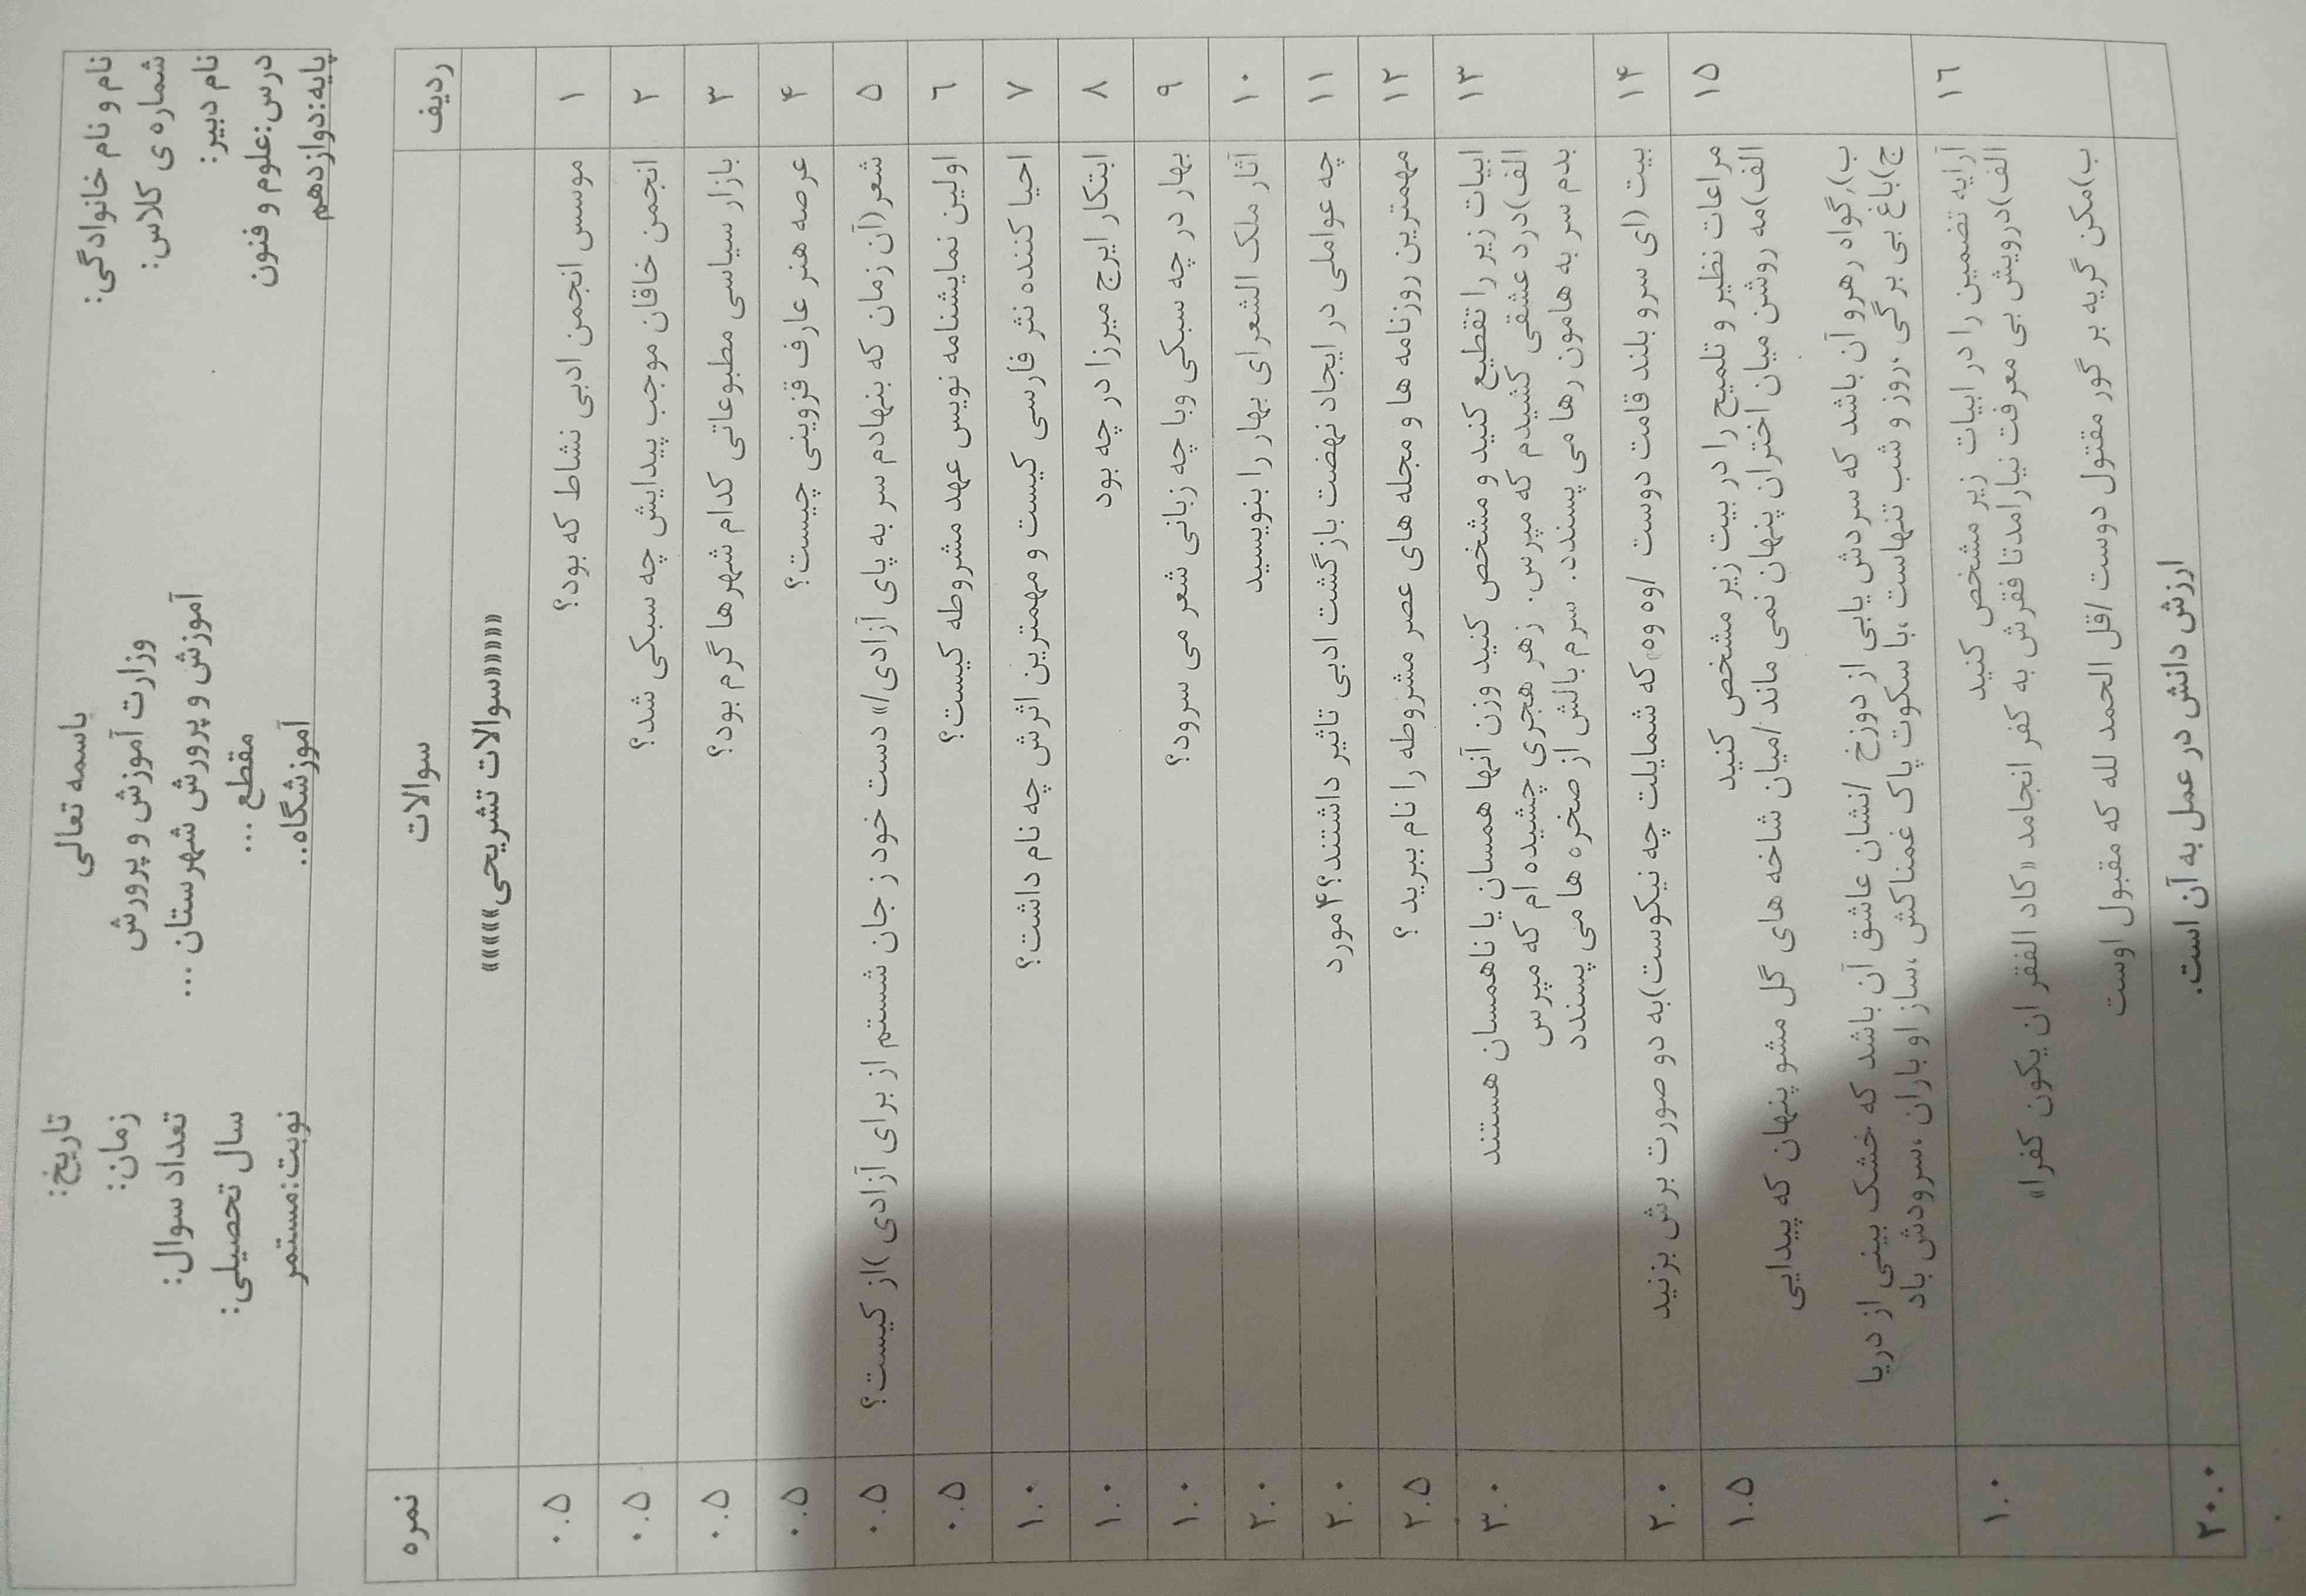 باسمه تعالی
نام و نام خانوادگی:
وزارت آموزش و پرورش
تاریخ:
شماره ی کلاس:
آموزش و پرورش شهرستان ...
زمان:
نام دبیر:
مقطع ...
تعداد سوال:
درس:علوم و فنون
آموزشگاه..
سال تحصیلی:
پایه:دوازدهم
نوبت:مستمر
ردیف سوالات نمره
««««««سوالات تشریحی»»»»»
۱ موسس انجمن ادبی نشاط که بود؟ ۰.۵
۲ انجمن خاقان موجب پیدایش چه سبکی شد؟ ۰.۵
۳ بازار سیاسی مطبوعاتی کدام شهرها گرم بود؟ ۰.۵
۴ عرصه هنر عارف قزوینی چیست؟ ۰.۵
۵ شعر(آن زمان که بنهادم سر به پای آزادی/» دست خود ز جان شستم از برای آزادی)از کیست؟ ۰.۵
۶ اولین نمایشنامه نویس عهد مشروطه کیست؟ ۰.۵
۷ احیا کننده نثر فارسی کیست و مهمترین اثرش چه نام داشت؟ ۱.۰
۸ ابتکار ایرج میرزا در چه بود ۱.۰
۹ بهار در چه سبکی وبا چه زبانی شعر می سرود؟ ۱.۰
۱۰ آثار ملک الشعرای بهار را بنویسید ۲.۰
۱۱ چه عواملی در ایجاد نهضت بازگشت ادبی تاثیر داشتند؟۴مورد ۲.۰
۱۲ مهمترین روزنامه ها و مجله های عصر مشروطه را نام ببرید ؟ ۲.۵
۱۳ ابیات زیر را تقطیع کنید و مشخص کنید وزن آنها همسان یا ناهمسان هستند ۳.۰
الف)درد عشقی کشیدم که مپرس. زهر هجری چشیده ام که مپرس
بدم سر به هامون رها می پسندد. سرم بالش از صخره ها می پسندد
۱۴ بیت (ای سرو بلند قامت دوست /وه وه که شمایلت چه نیکوست)به دو صورت برش بزنید ۲.۰
۱۵ مراعات نظیر و تلمیح را در بیت زیر مشخص کنید ۱.۵
الف)مه روشن میان اختران پنهان نمی ماند /میان شاخه های گل مشو پنهان که پیدایی
ب)گواه رهرو آن باشد که سردش یابی از دوزخ /نشان عاشق آن باشد که خشک بینی از دریا
ج)باغ بی برگی ،روز و شب تنهاست ،با سکوت پاک غمناکش ،ساز او باران ،سرودش باد
۱۶ آرایه تضمین را در ابیات زیر مشخص کنید ۱.۰
الف)درویش بی معرفت نیارامدتا فقرش به کفر انجامد «کاد الفقر ان یکون کفرا»
ب)مکن گریه بر گور مقتول دوست /قل الحمد لله که مقبول اوست
ارزش دانش در عمل به آن است. ۲۰.۰